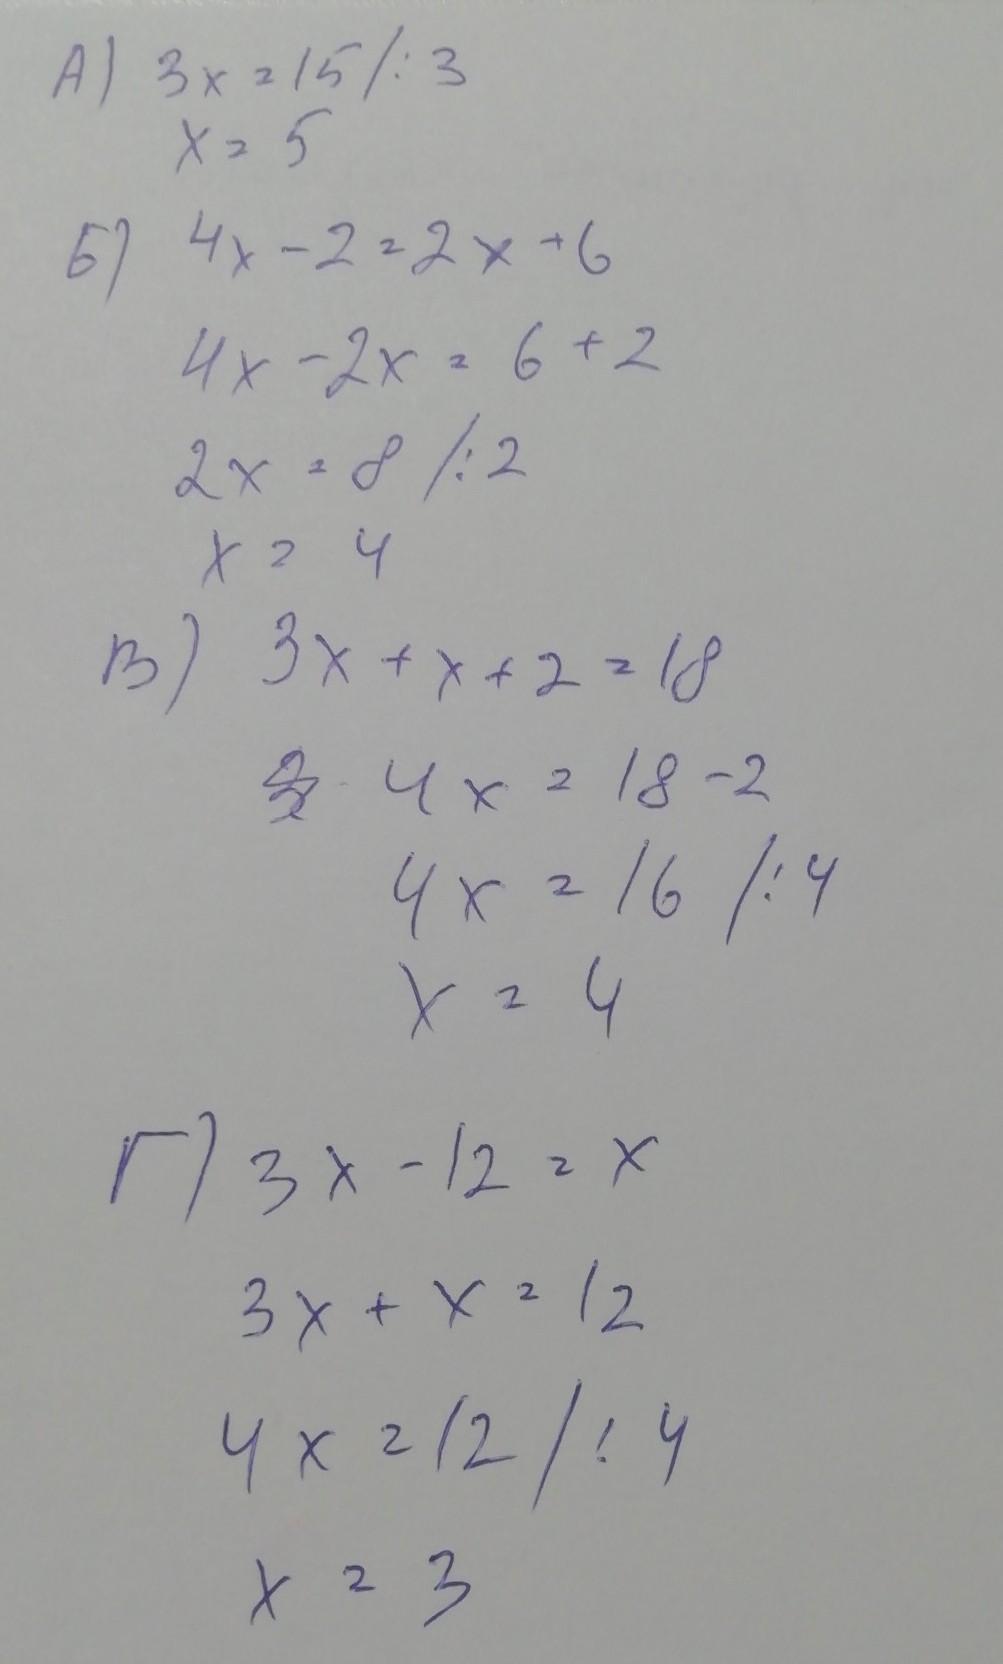 А) 3x = 15 /:3
x = 5
Б) 4x - 2 = 2x + 6
4x - 2x = 6 + 2
2x = 8 /:2
x = 4
В) 3x + x + 2 = 18
4x = 18 - 2
4x = 16 /:4
x = 4
Г) 3x - 12 = x
3x + x = 12
4x = 12 /:4
x = 3